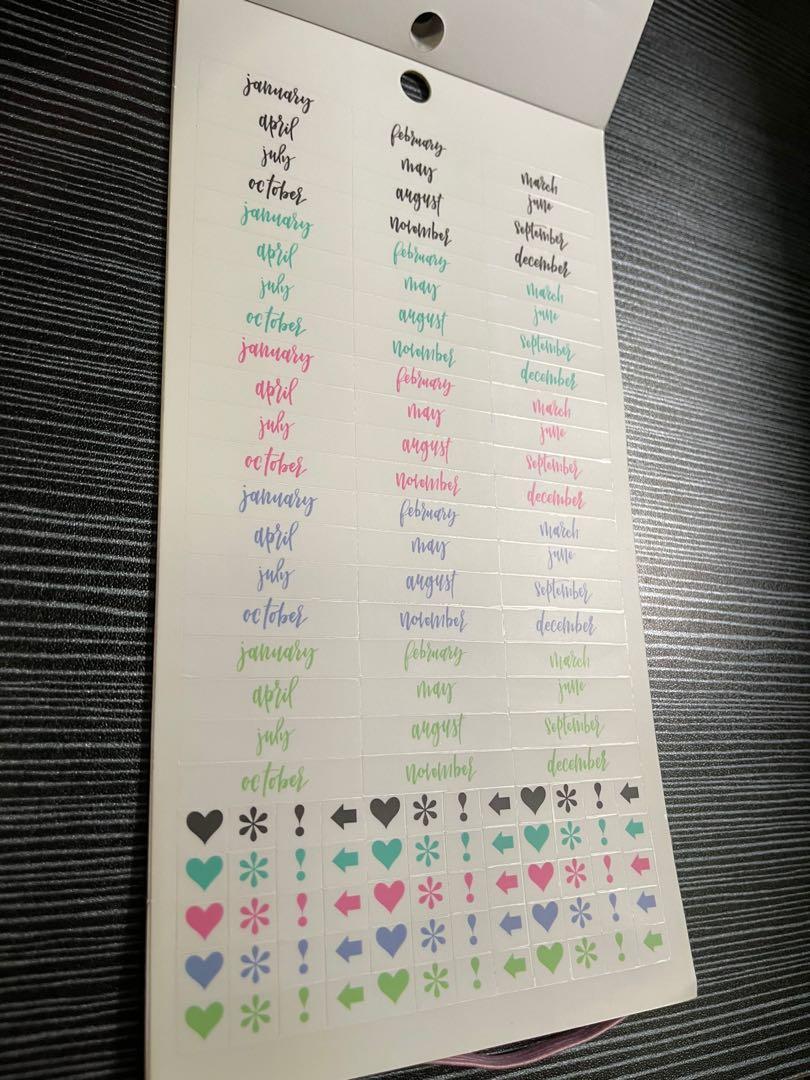 january february march
april may june
july august september
october november december
january february march
april may june
july august september
october november december
january february march
april may june
july august september
october november december
january february march
april may june
july august september
october november december
january february march
april may june
july august september
october november december
♥ * ! ← ♥ * ! ← ♥ * ! ←
♥ * ! ← ♥ * ! ← ♥ * ! ←
♥ * ! ← ♥ * ! ← ♥ * ! ←
♥ * ! ← ♥ * ! ← ♥ * ! ←
♥ * ! ← ♥ * ! ← ♥ * ! ←